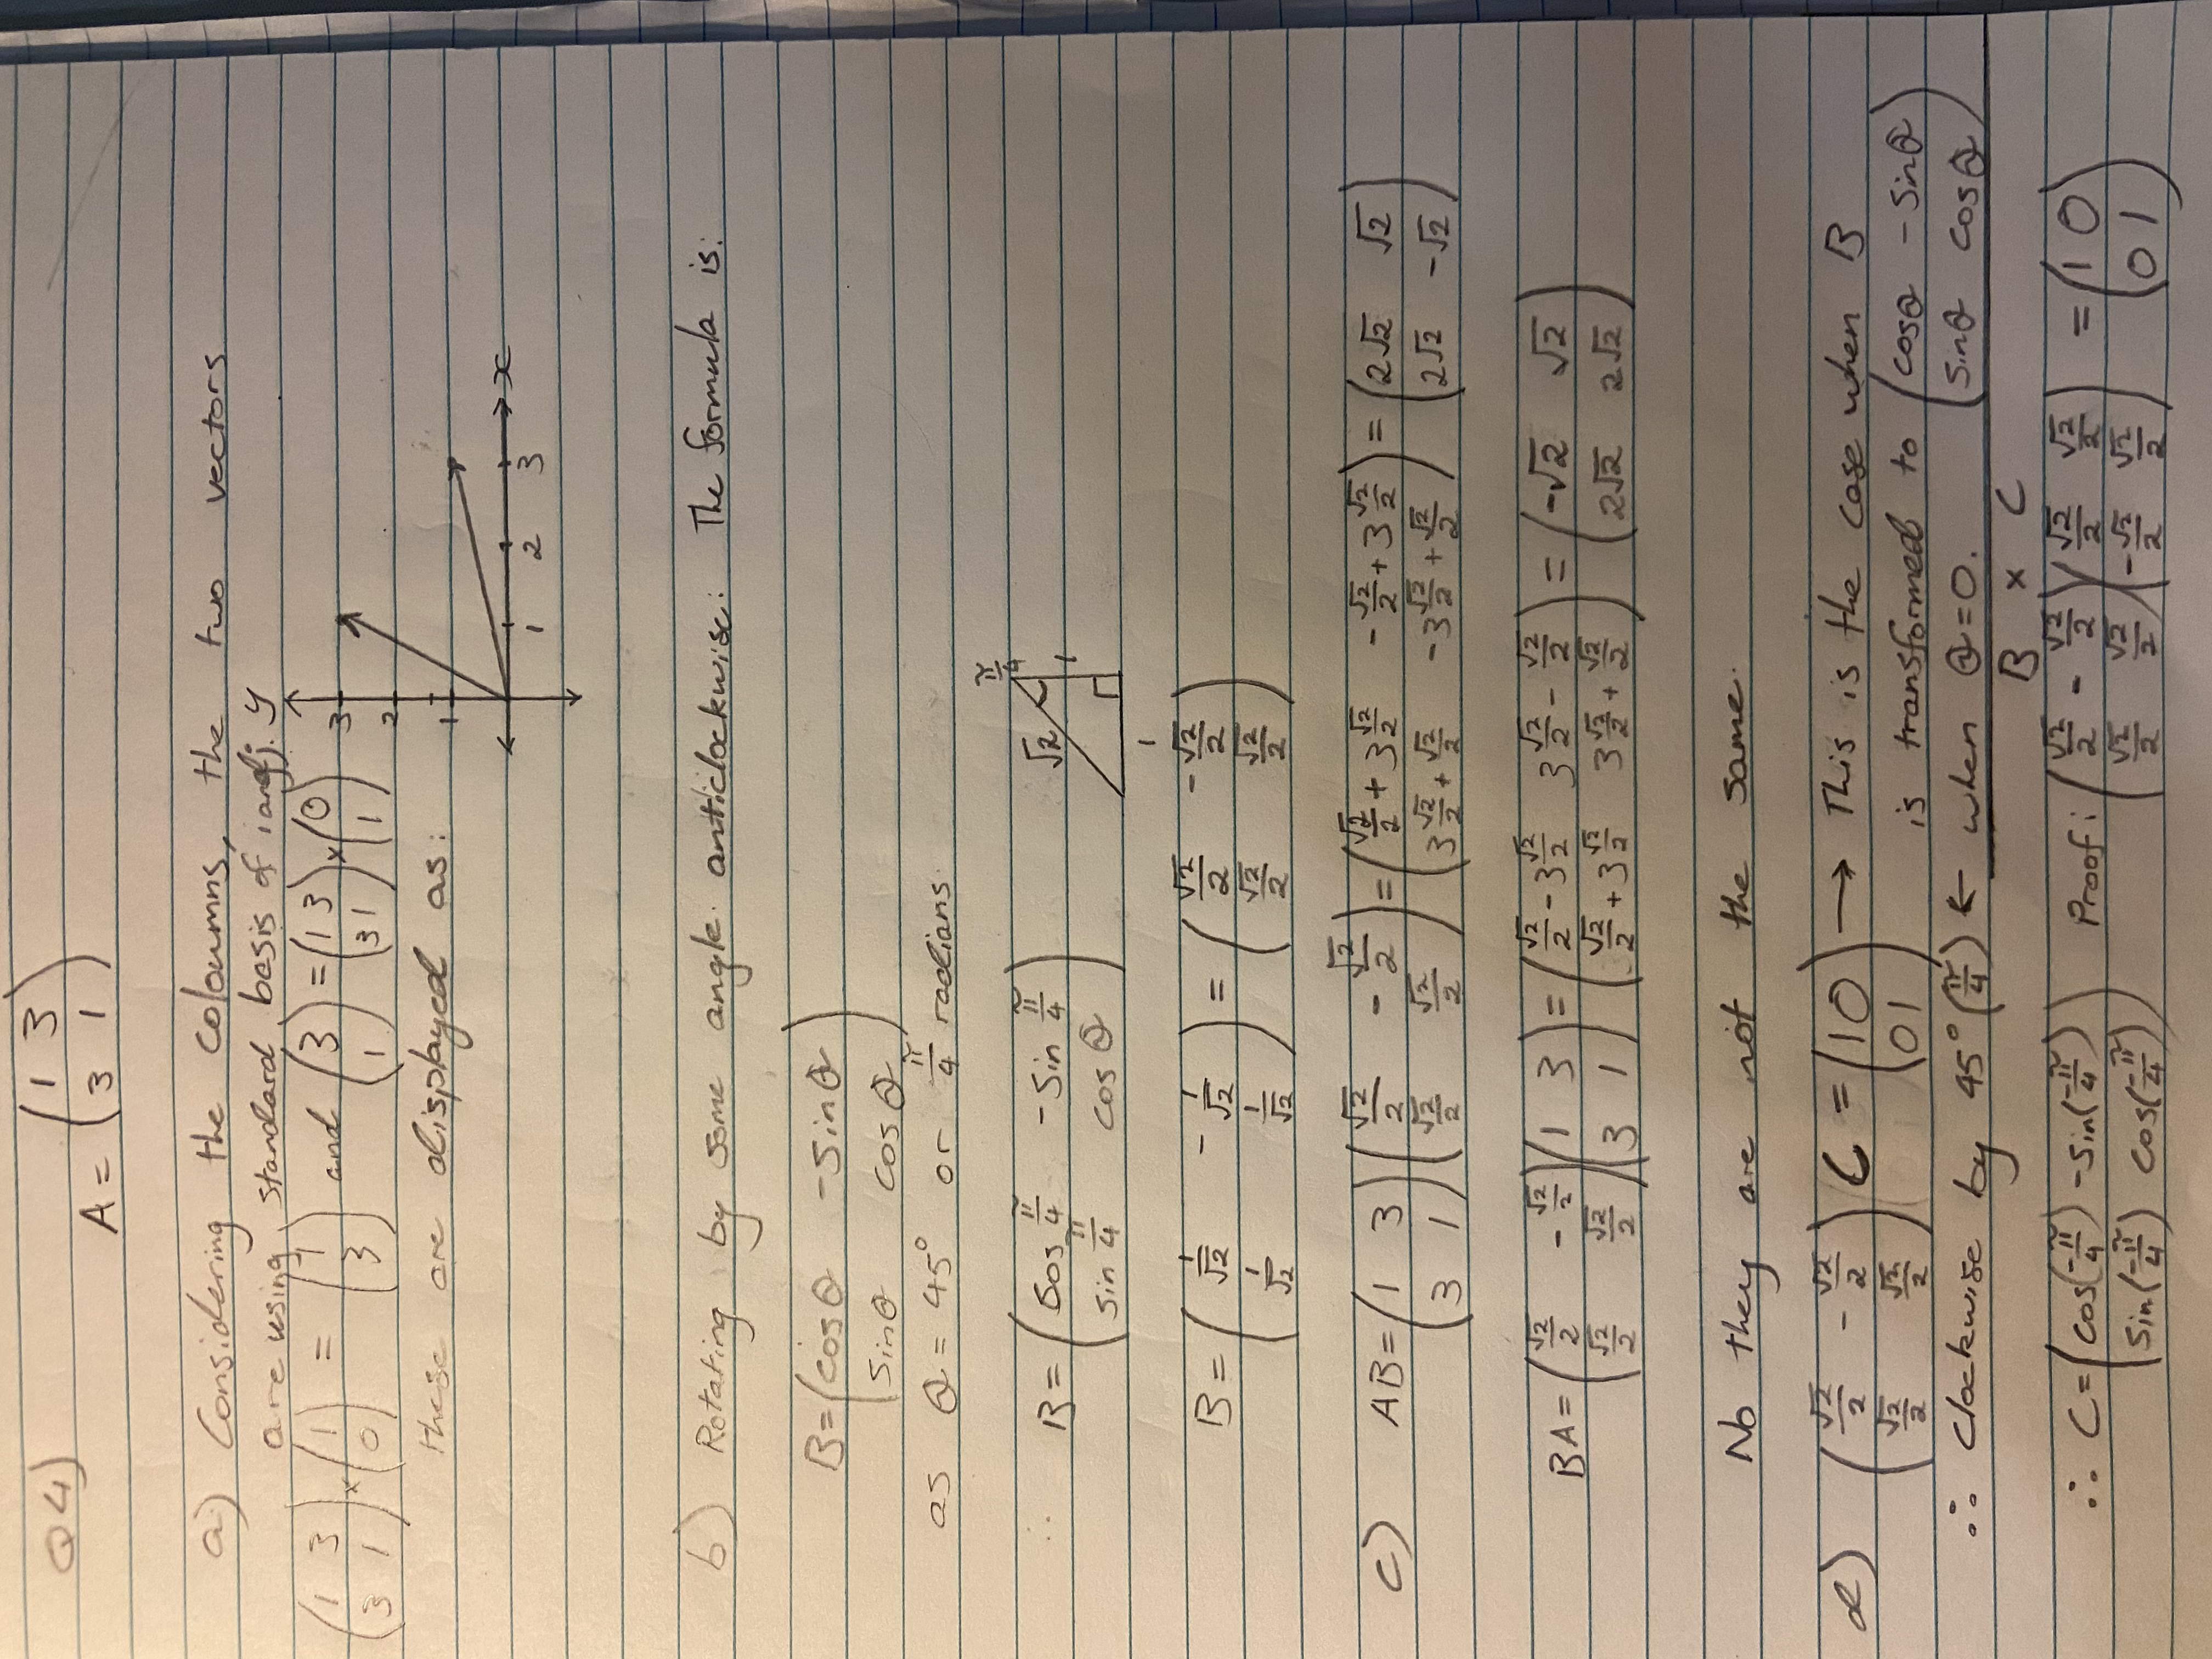 Q4) A = (1 3
3 1)
a) Considering the coloumns, the two vectors
are using standard basis of i and j.
(1 3
3 1) × (1
0) = (1
3) and (3
1) = (1 3
3 1) × (0
1)
these are displayed as:
y
3
2
1
x
1 2 3
b) Rotating by some angle anticlockwise: The formula is:
B = (cosθ -sinθ
sinθ cosθ)
as θ = 45° or π/4 radians
∴ B = (cos π/4 -sin π/4
sin π/4 cos θ)
π/4
√2
1
1
B = (1/√2 -1/√2
1/√2 1/√2) = (√2/2 -√2/2
√2/2 √2/2)
c) AB = (1 3
3 1) (√2/2 -√2/2
√2/2 √2/2) = (√2/2 + 3√2/2 -√2/2 + 3√2/2
3√2/2 + √2/2 -3√2/2 + √2/2) = (2√2 √2
2√2 -√2)
BA = (√2/2 -√2/2
√2/2 √2/2) (1 3
3 1) = (√2/2 - 3√2/2 3√2/2 - √2/2
√2/2 + 3√2/2 3√2/2 + √2/2) = (-√2 √2
2√2 2√2)
No they are not the same.
d) (√2/2 -√2/2
√2/2 √2/2) C = (1 0
0 1) → This is the case when B
is transformed to (cosθ -sinθ
sinθ cosθ)
∴ Clockwise by 45° (π/4) ← when θ=0.
B × C
∴ C = (cos(-π/4) -sin(-π/4)
sin(-π/4) cos(-π/4))
Proof: (√2/2 -√2/2
√2/2 √2/2) (√2/2 √2/2
-√2/2 √2/2) = (1 0
0 1)